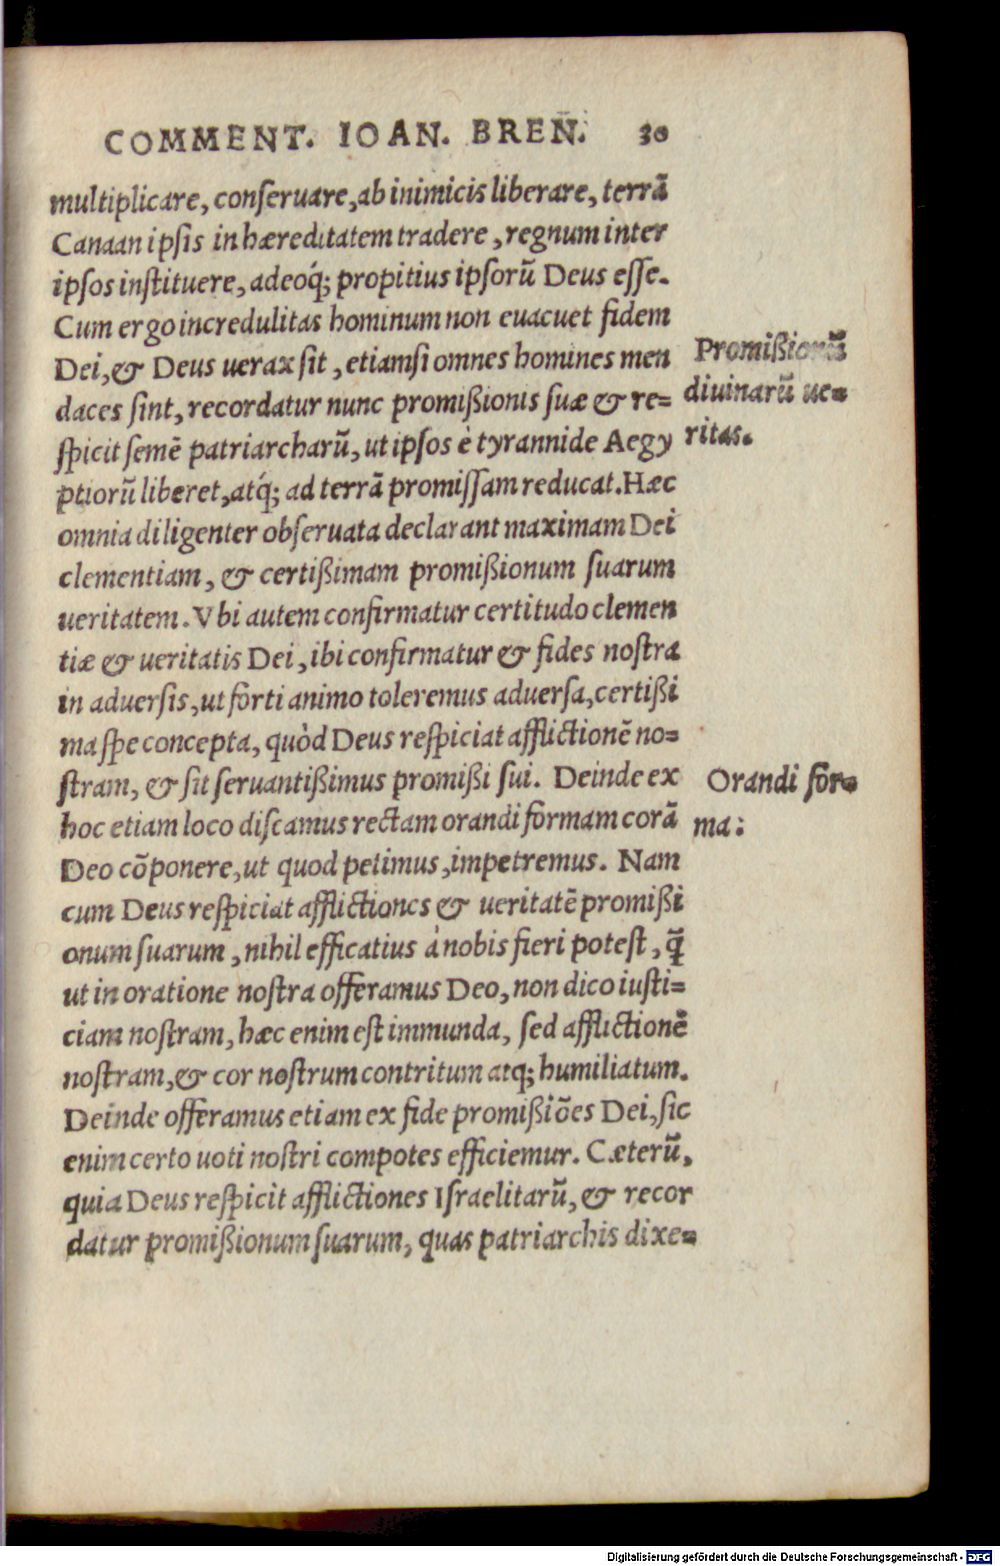 COMMENT. IOAN. BREN. 30
multiplicare, conſeruare, ab inimicis liberare, terrã
Canaan ipſis in hæreditatem tradere, regnum inter
ipſos inſtituere, adeoq́; propitius ipſorũ Deus eſſe.
Cum ergo incredulitas hominum non euacuet fidem
Dei, & Deus uerax ſit, etiamſi omnes homines men
daces ſint, recordatur nunc promißionis ſuæ & re=
ſpicit ſemẽ patriarcharũ, ut ipſos è tyrannide Aegy
ptiorũ liberet, atq́; ad terrã promiſſam reducat. Hæc
omnia diligenter obſeruata declarant maximam Dei
clementiam, & certißimam promißionum ſuarum
ueritatem. Vbi autem confirmatur certitudo clemen
tiæ & ueritatis Dei, ibi confirmatur & fides noſtra
in aduerſis, ut forti animo toleremus aduerſa, certißi
ma ſpe concepta, quòd Deus reſpiciat afflictionẽ no=
ſtram, & ſit ſeruantißimus promißi ſui. Deinde ex
hoc etiam loco diſcamus rectam orandi formam corã
Deo cõponere, ut quod petimus, impetremus. Nam
cum Deus reſpiciat afflictiones & ueritatẽ promißi
onum ſuarum, nihil efficatius à nobis fieri poteſt, q̃
ut in oratione noſtra offeramus Deo, non dico iuſti=
ciam noſtram, hæc enim eſt immunda, ſed afflictionẽ
noſtram, & cor noſtrum contritum atq; humiliatum.
Deinde offeramus etiam ex fide promißiões Dei, ſic
enim certo uoti noſtri compotes efficiemur. Cæterũ,
quia Deus reſpicit afflictiones Iſraelitarũ, & recor
datur promißionum ſuarum, quas patriarchis dixe=
Promißionũ
diuinarũ ue=
ritas.
Orandi for=
ma:
Digitalisierung gefördert durch die Deutsche Forschungsgemeinschaft - DFG